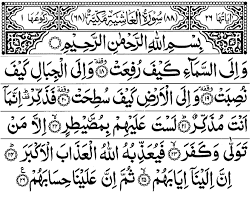 اٰيَاتُهَا ٢٦ (٨٨) سُوْرَةُ الْغَاشِيَةِ مَكِّيَّةٌ (٦٨) رُكُوْعُهَا ١
بِسْمِ اللّٰهِ الرَّحْمٰنِ الرَّحِيْمِ
وَاِلَى السَّمَآءِ كَيْفَ رُفِعَتْ ١٨ وَاِلَى الْجِبَالِ كَيْفَ
نُصِبَتْ ١٩ وَاِلَى الْاَرْضِ كَيْفَ سُطِحَتْ ٢٠ فَذَكِّرْ اِنَّمَآ
اَنْتَ مُذَكِّرٌ ٢١ لَسْتَ عَلَيْهِمْ بِمُصَيْطِرٍ ٢٢ اِلَّا مَنْ
تَوَلّٰى وَكَفَرَ ٢٣ فَيُعَذِّبُهُ اللّٰهُ الْعَذَابَ الْاَكْبَرَ ٢٤
اِنَّ اِلَيْنَآ اِيَابَهُمْ ٢٥ ثُمَّ اِنَّ عَلَيْنَا حِسَابَهُمْ ٢٦